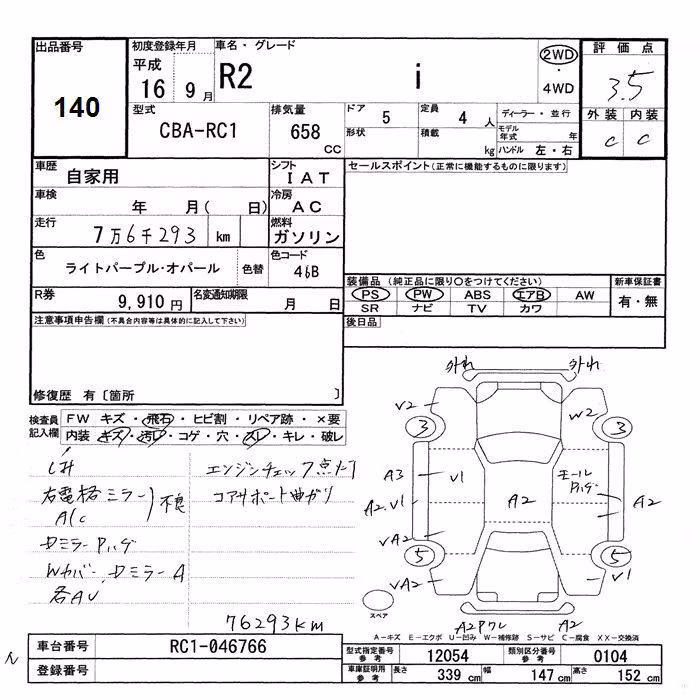 出品番号 初度登録年月 車名・グレード 評価点
140 平成 16 9月 R2 i 2WD・4WD 3.5
型式 CBA-RC1 排気量 658 CC ドア 5 定員 4人 ディーラー・並行 外装 内装
形状 積載 kg モデル年式 年 ハンドル 左・右 C C
車歴 自家用 シフト IAT セールスポイント(正常に機能するものに限ります)
車検 年 月( 日) 冷房 AC
走行 7万6千293 km 燃料 ガソリン
色 ライトパープル・オパール 色替 色コード 46B
装備品 (純正品に限り○をつけてください) 新車保証書
R券 9,910円 名変通知期限 月 日 PS PW ABS エアB AW 有・無
SR ナビ TV カワ
注意事項申告欄(不具合内容等は具体的に記入して下さい) 後日品
修復歴 有〔箇所 〕
検査員記入欄 FW キズ・飛石・ヒビ割・リペア跡・×要
内装 キズ・汚レ・コゲ・穴・スレ・キレ・破レ
シミ エンジンチェック点灯
右電格ミラー 不良 コアサポート曲ガリ
A/C
Dミラー Pハゲ
Wカバー、Dミラー A
各AU
76293km
外れ 外れ
V2 W2
3 3
A3 V1 モール Pハゲ
A2.V1 A2 A2
VA2
5 5
VA2 V1
スペア A2 A2
A-キズ E-エクボ U-凹み W-補修跡 S-サビ C-腐食 XX-交換済
車台番号 RC1-046766 型式指定番号 参考 12054 類別区分番号 参考 0104
登録番号 車庫証明用 参考 長さ 339 cm 幅 147 cm 高さ 152 cm